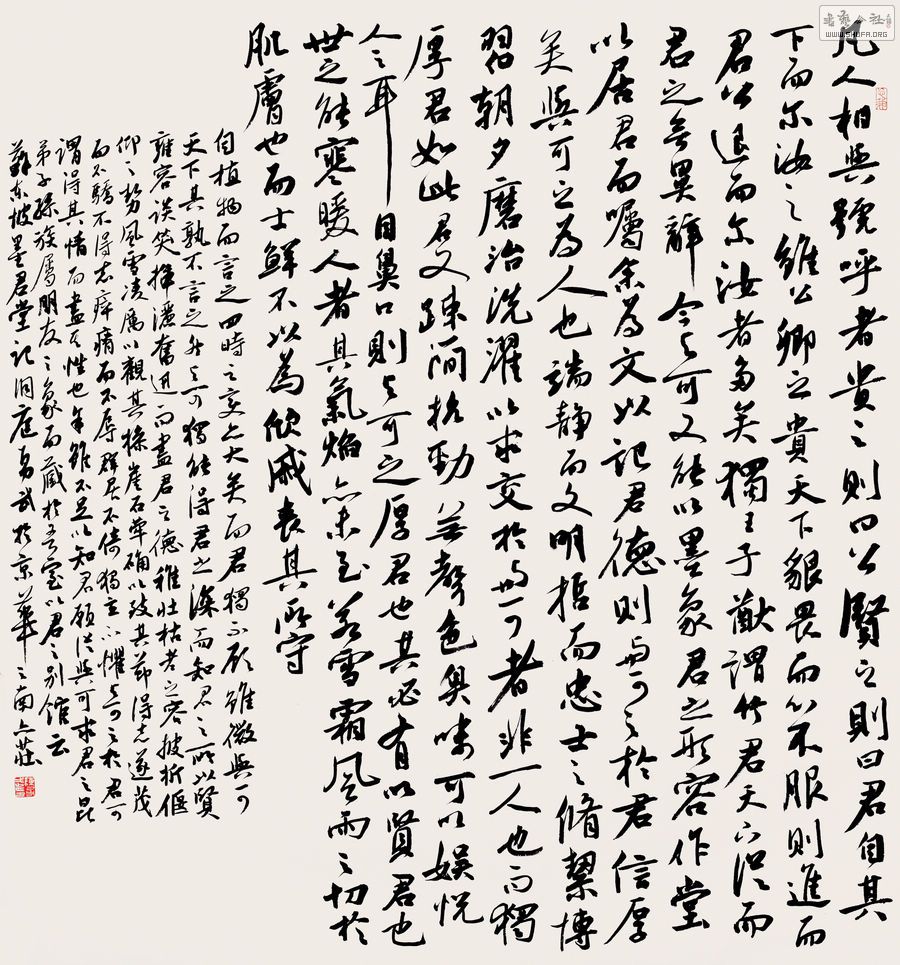 凡人相與號呼者貴之則曰公賢之則曰君自其
下而尔汝之雖公卿之貴天下貌畏而心不服則進而
君公退而尔汝者多矣獨王子猷謂竹君天下從而
君之無異辭今與可又能以墨象君之形容作堂
以居君而囑余為文以記君德則與可之於君信厚
矣與可之為人也端靜而文明哲而忠士之脩潔博
習朝夕磨治洗濯以求交於與可者非一人也而獨
厚君如此君又疎簡抗勁無聲色臭味可以娛悅
人之耳目鼻口則與可之厚君也其必有以賢君也
世之能寒暖人者其氣焰亦未至若雪霜風雨之切於
肌膚也而士鮮不以為欣戚喪其所守
自植物而言之四時之變亦大矣而君獨不顧雖微與可
天下其孰不言之然與可獨能得君之深而知君之所以賢
雍容談笑揮灑奮迅而盡君之德稚壯枯老之容披折偃
仰之勢風雪凌厲以觀其操崖石犖确以致其節得志遂茂
而不驕不得志瘁瘠而不辱群居不倚獨立不懼與可之於君可
謂得其情而盡其性也余雖不足以知君願從與可求君之昆
弟子孫族屬朋友之象而藏於吾室以君之別館云
蘇東坡墨君堂記洞庭易武於京華之南上莊
書藝公社
WWW.SHUFA.ORG